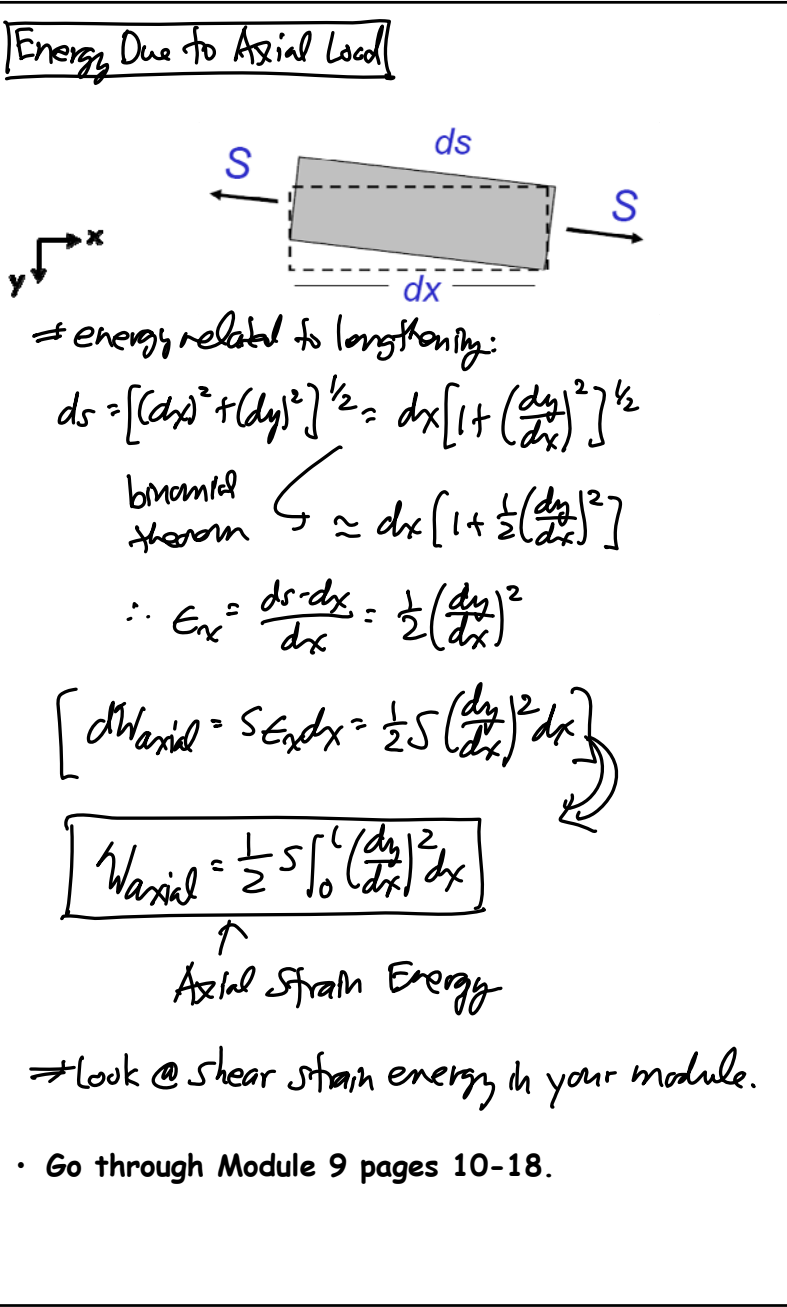 Energy Due to Axial Load
S
ds
S
x
y
dx
⇒ energy related to lengthening:
ds = [(dx)² + (dy)²]^1/2 = dx[1 + (dy/dx)²]^1/2
binomial
theorem ≃ dx[1 + 1/2(dy/dx)²]
∴ ϵx = (ds-dx)/dx = 1/2(dy/dx)²
[dWaxial = Sϵxdx = 1/2 S(dy/dx)²dx]
Waxial = 1/2 S∫₀ˡ(dy/dx)²dx
↑
Axial Strain Energy
⇒ Look @ shear strain energy in your module.
· Go through Module 9 pages 10-18.